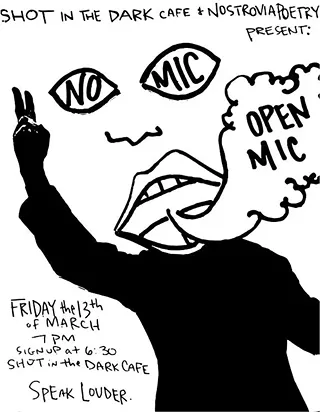 SHOT IN THE DARK CAFE & NOSTROVIAPOETRY
PRESENT:
NO
MIC
OPEN
MIC
FRIDAY the 13th
of MARCH
7 PM
SIGNUP at 6:30
SHOT in the DARK CAFE
SPEAK LOUDER.